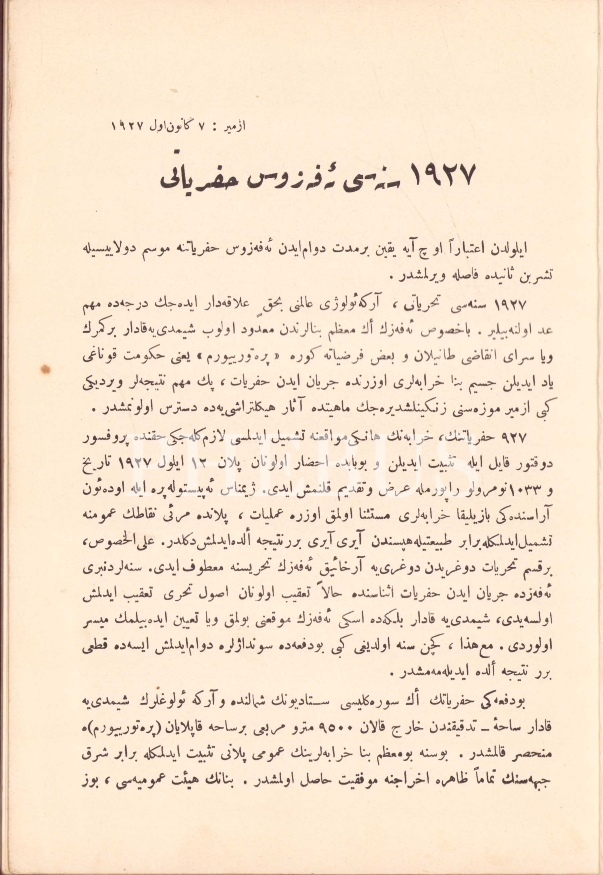 ازمير : ٧ كانون اول ١٩٢٧
١٩٢٧ سنه‌سى ئه‌فه‌زوس حفرياتى
ايلولدن اعتباراً اوچ آيه يقين برمدت دوام ايدن ئه‌فه‌زوس حفرياتنه موسم دولاييسيله
تشرين ثانيده فاصله ويرلمشدر .
١٩٢٧ سنه‌سى تحرياتى ، آركه‌ئولوژى عالمنى بحق علاقه‌دار ايده‌جك درجه‌ده مهم
عد اولنه‌بيلير . باخصوص ئه‌فه‌زك اك معظم بنالرندن معدود اولوب شيمدى‌يه قادار بركمرك
ويا سراى انقاضى طانيلان و بعض فرضياته كوره « پره‌توريبورم » يعنى حكومت قوناغى
ياد ايديلن جسيم بنا خرابه‌لرى اوزرنده جريان ايدن حفريات ، پك مهم نتيجه‌لر ويرديكى
كبى ازمير موزه‌سنى زنكينلشديره‌جك ماهيتده آثار هيكلتراشى‌يه‌ده دسترس اولونمشدر .
٩٢٧ حفرياتنك، خرابه‌نك هانكى مواقعنه تشميل ايدلمسى لازم كله‌جكى حقنده پروفسور
دوقتور قايل ايله تثبيت ايديلن و بوبابده احضار اولونان پلان ١٢ ايلول ١٩٢٧ تاريخ
و ١٠٣٣ نومرولو راپورمله عرض وتقديم قلنمش ايدى. ژيمناس ئه‌پيستوله‌پره ايله اوده‌ئون
آراسنده‌كى بازيليقا خرابه‌لرى مستثنا اولمق اوزره عمليات ، پلانده مرئى نقاطك عمومنه
تشميل ايدلمكله برابر طبيعتيله هپسندن آيرى آيرى بررنتيجه ألده ايدلمش دكلدر. على‌الخصوص،
برقسم تحريات دوغريدن دوغرى‌يه آرخائيق ئه‌فه‌زك تحريسنه معطوف ايدى. سنه‌لردنبرى
ئه‌فه‌زده جريان ايدن حفريات اثناسنده حالاً تعقيب اولونان اصول تحرى تعقيب ايدلمش
اولسه‌يدى، شيمدى‌يه قادار بلكه‌ده اسكى ئه‌فه‌زك موقعنى بولمق ويا تعيين ايده‌بيلمك ميسر
اولوردى . مع‌هذا ، كچن سنه اولديغى كبى بودفعه‌ده سونداژلره دوام ايدلمش ايسه‌ده قطعى
برر نتيجه ألده ايديله‌مه‌مشدر .
بودفعه‌كى حفرياتك أك سوره‌كليسى ستاديونك شمالنده و آركه ئولوغلرك شيمدى‌يه
قادار ساحهٔ ـ تدقيقندن خارج قالان ٩٥٠٠ مترو مربعى برساحه قاپلايان (پره‌توريبورم)ه
منحصر قالمشدر . بوسنه بومعظم بنا خرابه‌لرينك عمومى پلانى تثبيت ايدلمكله برابر شرق
جبهه‌سنك تماماً ظاهره اخراجنه موفقيت حاصل اولمشدر . بنانك هيئت عموميه‌سى ، بوز